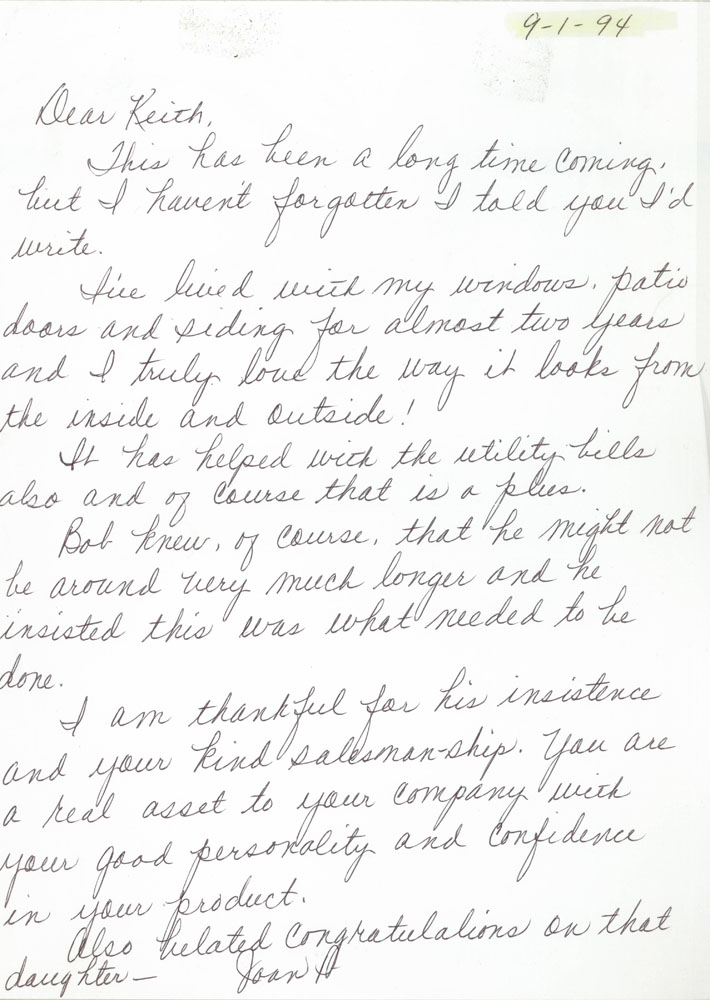 9-1-94
Dear Keith,
This has been a long time coming,
but I haven't forgotten I told you I'd
write.
I've lived with my windows, patio
doors and siding for almost two years
and I truly love the way it looks from
the inside and outside!
It has helped with the utility bills
also and of course that is a plus.
Bob knew, of course, that he might not
be around very much longer and he
insisted this was what needed to be
done.
I am thankful for his insistence
and your kind salesman-ship. You are
a real asset to your company with
your good personality and confidence
in your product.
Also belated congratulations on that
daughter— Joan H